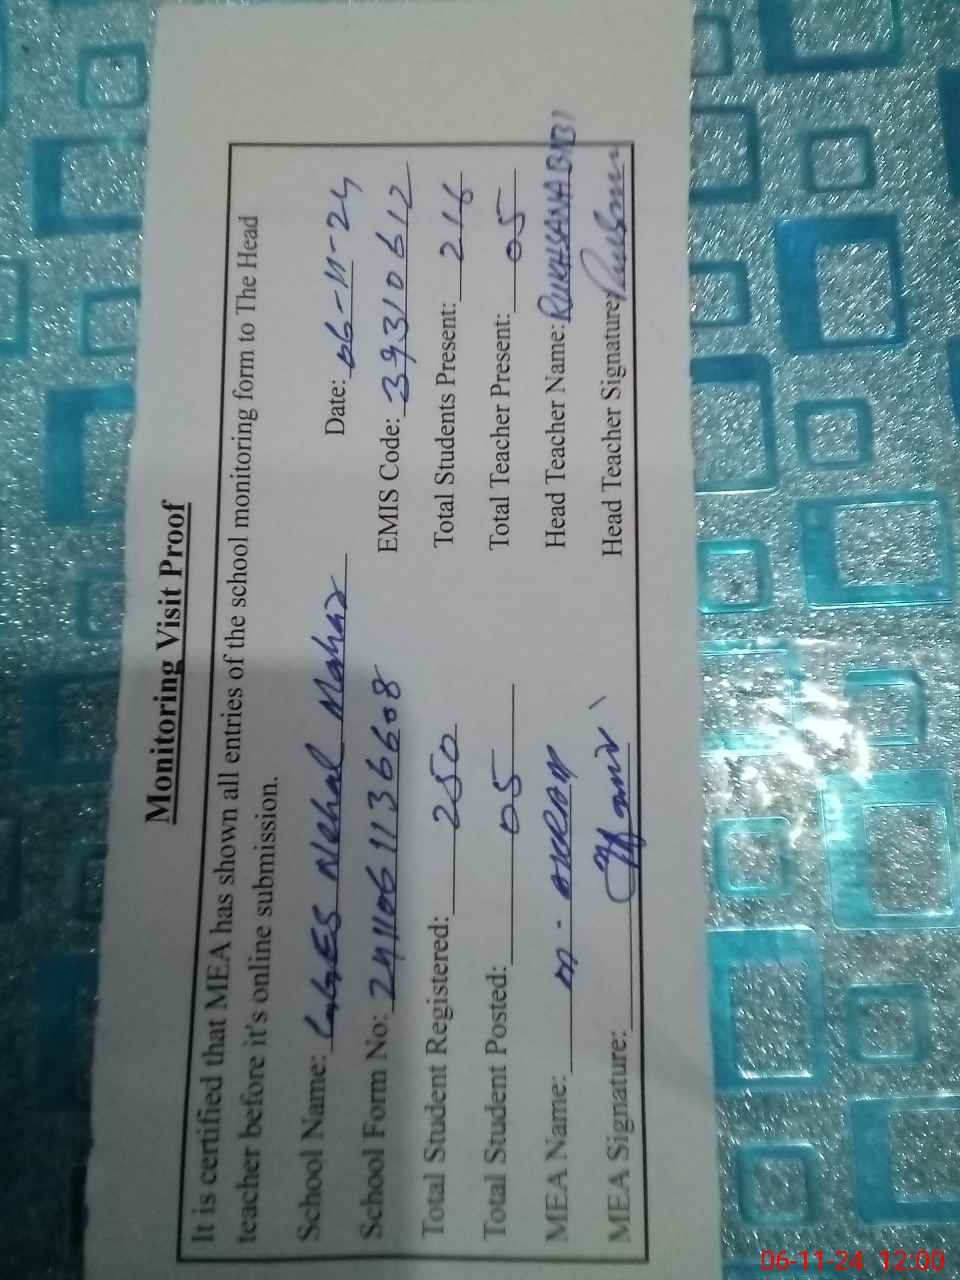 Monitoring Visit Proof
It is certified that MEA has shown all entries of the school monitoring form to The Head
teacher before it's online submission.
School Name: GGES Nehal Mahar Date: 06-11-24
School Form No: 2411061136608 EMIS Code: 39310612
Total Student Registered: 250 Total Students Present: 216
Total Student Posted: 05 Total Teacher Present: 05
MEA Name: M. Head Teacher Name: RUKHSANA BIBI
MEA Signature: Head Teacher Signature:
06-11-24 12:00